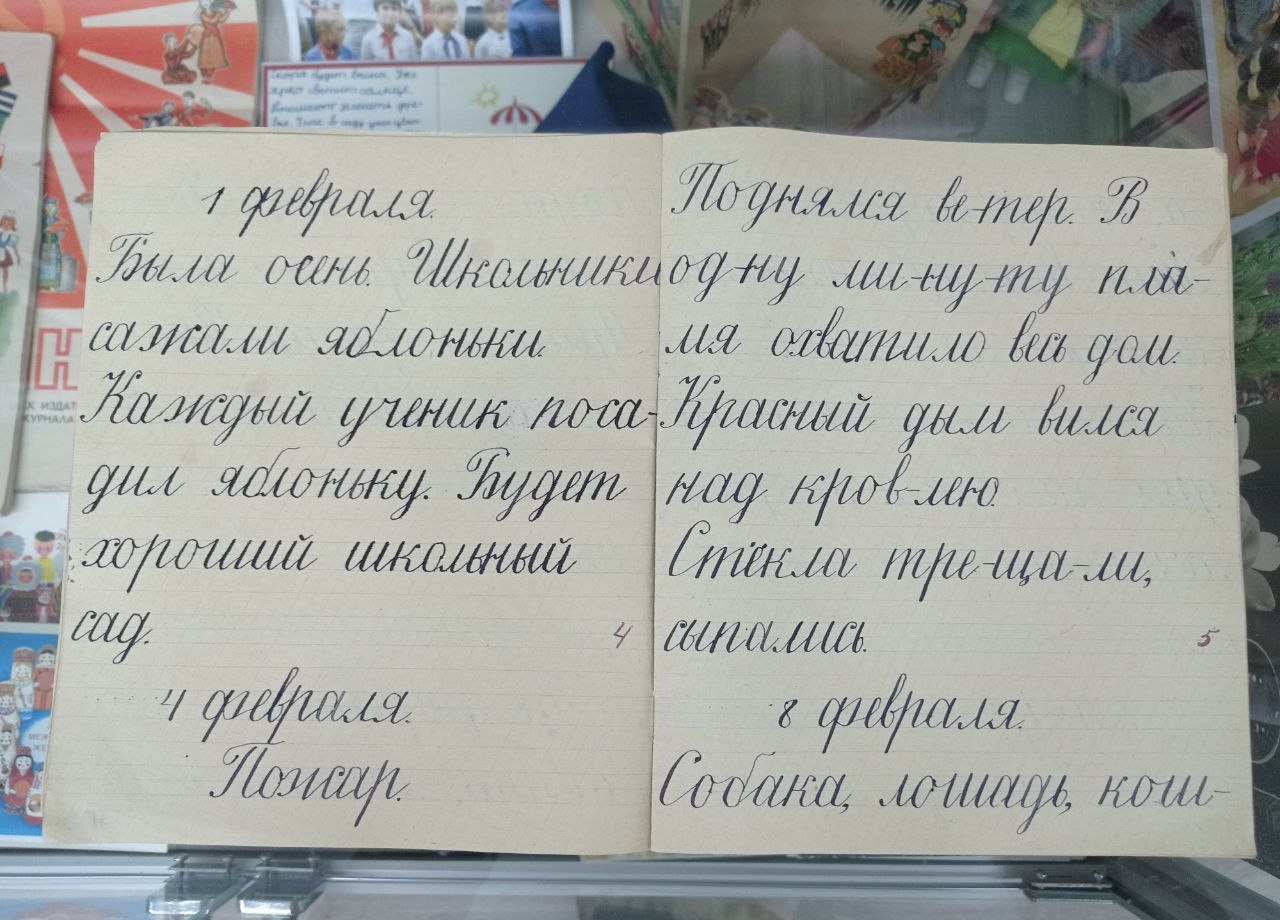 Скоро будет весна. Уже
ярко светит солнце.
1 февраля.
Была осень. Школьники
сажали яблоньки.
Каждый ученик поса-
дил яблоньку. Будет
хороший школьный
сад.
4
4 февраля.
Пожар.
Поднялся ве-тер. В
од-ну ми-ну-ту пла-
мя охватило весь дом.
Красный дым вился
над кров-лею.
Стёкла тре-ща-ли,
сыпались.
5
8 февраля.
Собака, лошадь, кош-
Н
ИЗДАТ
ЖУРНАЛА